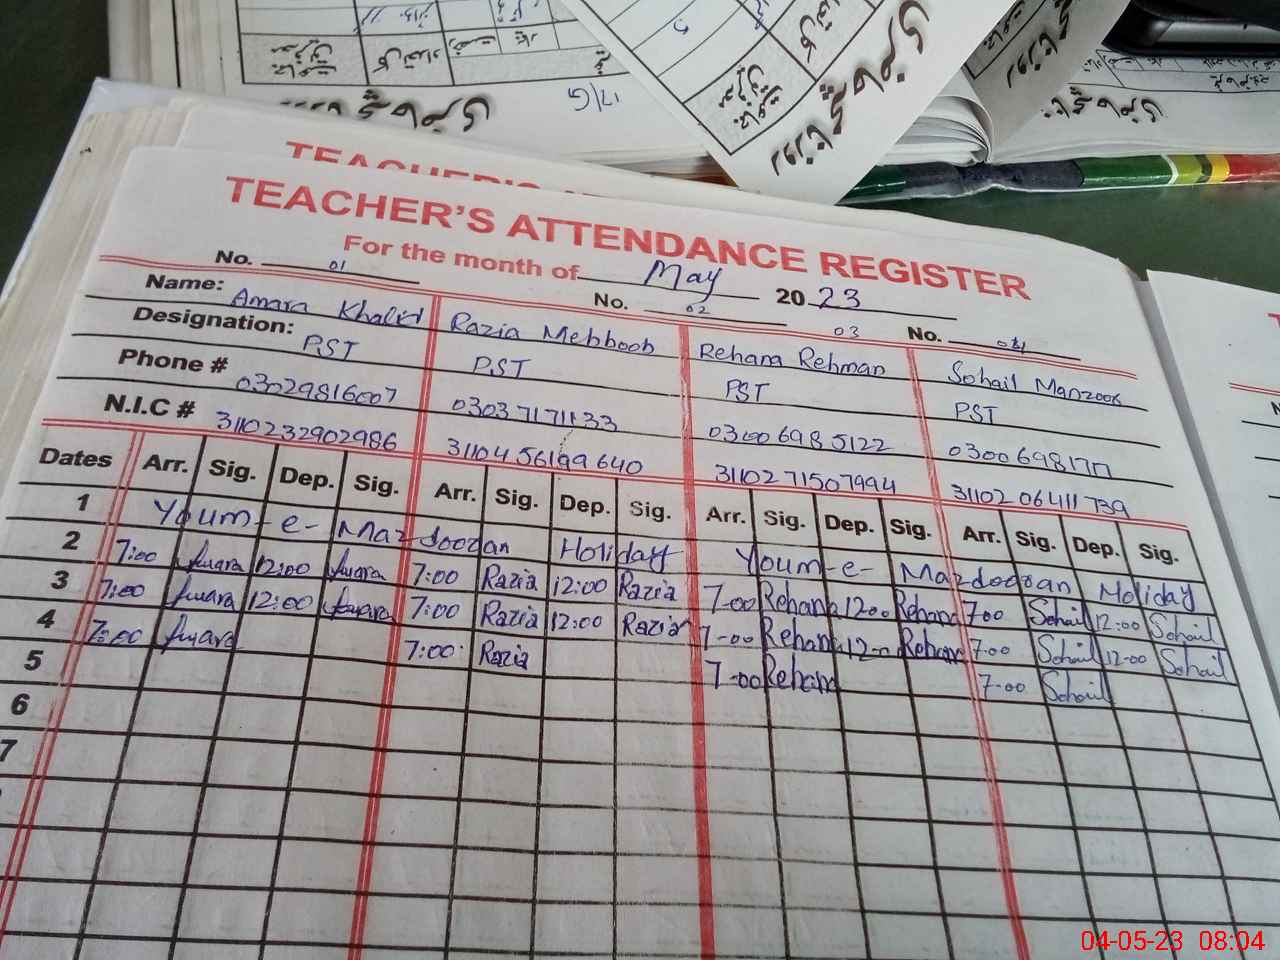 17/G
TEACHER'S ATTENDANCE REGISTER
For the month of May 20 23
No. 01 No. 02 03 No. 04
Name: Amara Khalid Razia Mehboob Rehana Rehman Sohail Manzoor
Designation: PST PST PST PST
Phone # 03029816007 03037171133 03006985122
N.I.C # 3110232902986 3110456199640 3110271507994 3110206411739
Dates Arr. Sig. Dep. Sig. Arr. Sig. Dep. Sig. Arr. Sig. Dep. Sig. Arr. Sig. Dep. Sig.
1 Youm-e- Mazdooran Holiday Youm-e- Mazdooran Holiday
2 7:00 Amara 12:00 Amara 7:00 Razia 12:00 Razia 7-00 Rehana 12-00 Rehana 7:00 Sohail 12:00 Sohail
3 7:00 Amara 12:00 Amara 7:00 Razia 12:00 Razia 7-00 Rehana 12-00 Rehana 7:00 Sohail 12-00 Sohail
4 7:00 Amara 7:00 Razia 7-00 Rehana 7-00 Sohail
5
6
7
04-05-23 08:04